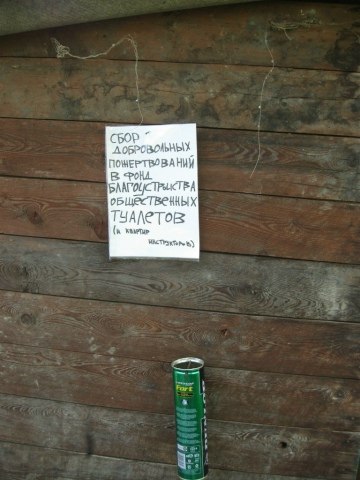 СБОР
ДОБРОВОЛЬНЫХ
ПОЖЕРТВОВАНИЙ
В ФОНД
БЛАГОУСТРЙСТВА
ОБЩЕСТВЕННЫХ
ТУАЛЕТОВ
(И КВАРТИР
ИНСТРУКТОРОВ)
Fort